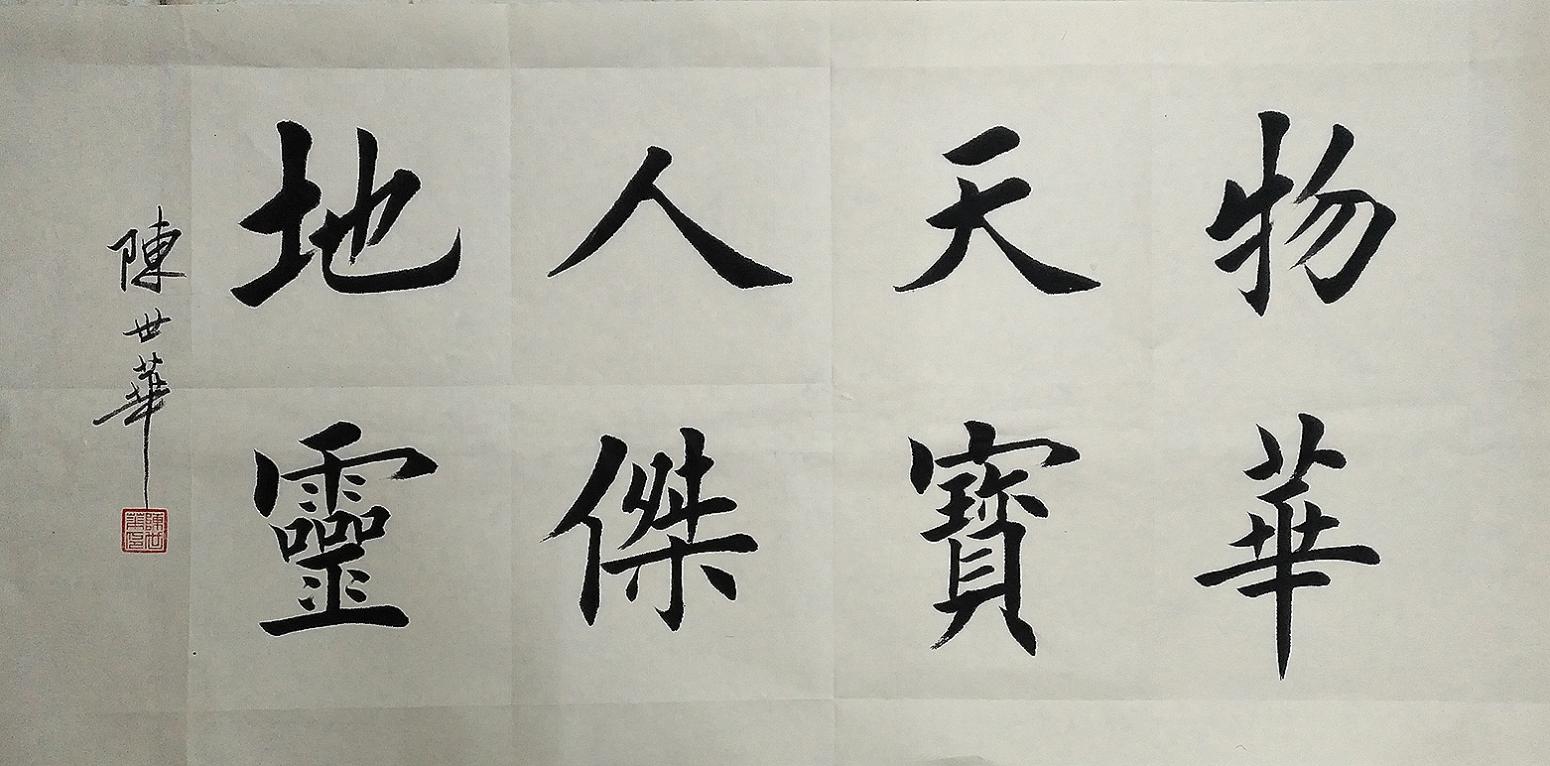 物華
天寶
人傑
地靈
陳世華
陳世華印